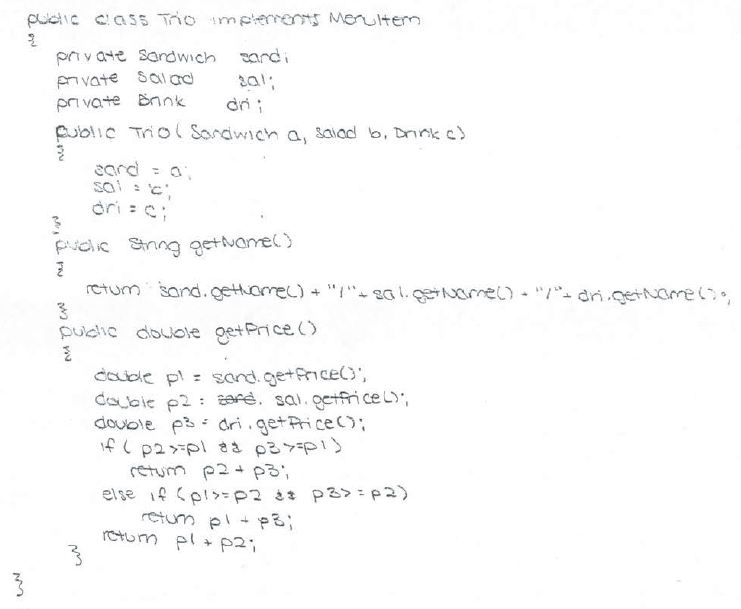 public class Trio implements MenuItem
{
private Sandwich sand;
private Salad sal;
private Drink dri;
public Trio( Sandwich a, Salad b, Drink c)
{
sand = a;
sal = b;
dri = c;
}
public String getName()
{
return sand.getName() + "/" + sal.getName() + "/" + dri.getName();
}
public double getPrice()
{
double p1 = sand.getPrice();
double p2 = sand. sal.getPrice();
double p3 = dri.getPrice();
if ( p2>=p1 && p3>=p1)
return p2 + p3;
else if (p1>=p2 && p3>=p2)
return p1 + p3;
return p1 + p2;
}
}